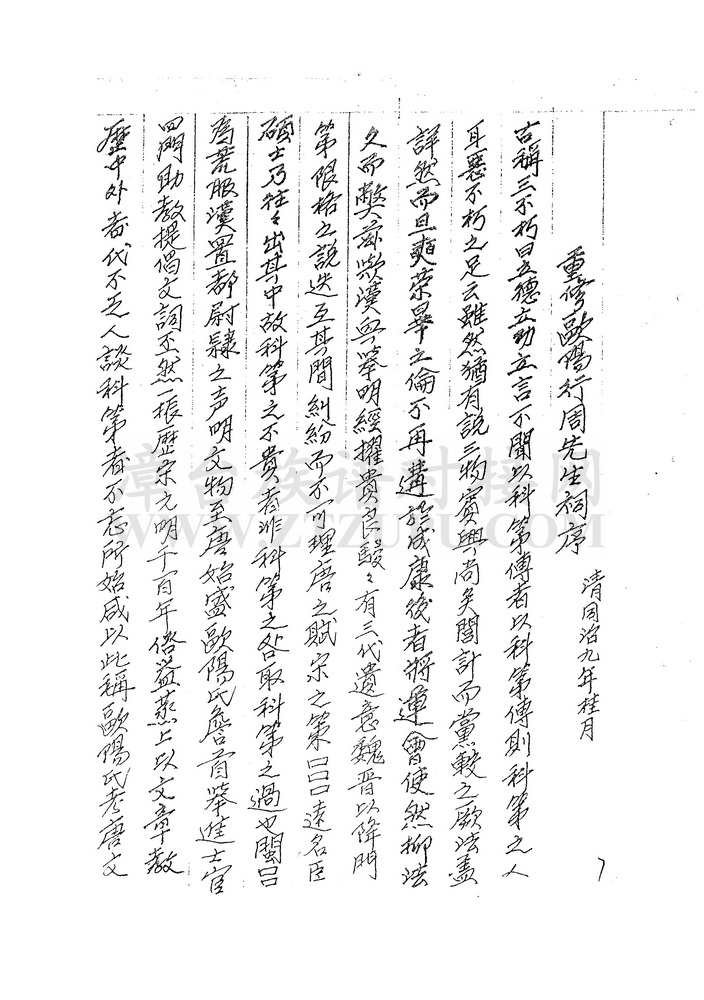 重修歐陽行周先生祠序
清同治九年桂月
古稱三不朽曰立德立功立言不聞以科第傳者以科第傳則科第之人
耳惡不朽之足云雖然猶有說三物賓興尚矣閭計而黨較之厥法盡
詳然而旦奭榮畢之倫不再遘於成康後者將運會使然抑法
久而弊茲歟漢興舉明經擢賢良駸々有三代遺意魏晉以降門
第限格之說迭互其間糾紛而不可理唐之賦宋之策口口遠名臣
碩士乃往々出其中故科第之不貴者非科第之咎取科第之過也閩口
為荒服漢置都尉隸之声明文物至唐始盛歐陽氏詹首舉進士官
四門助教提倡文詞丕然一振歷宋元明千百年俗益蒸上以文章教
歷中外者代不乏人談科第者不忘所始咸以此稱歐陽氏考唐文
7
章台族譜對接网
WWW.ZTZUPU.COM